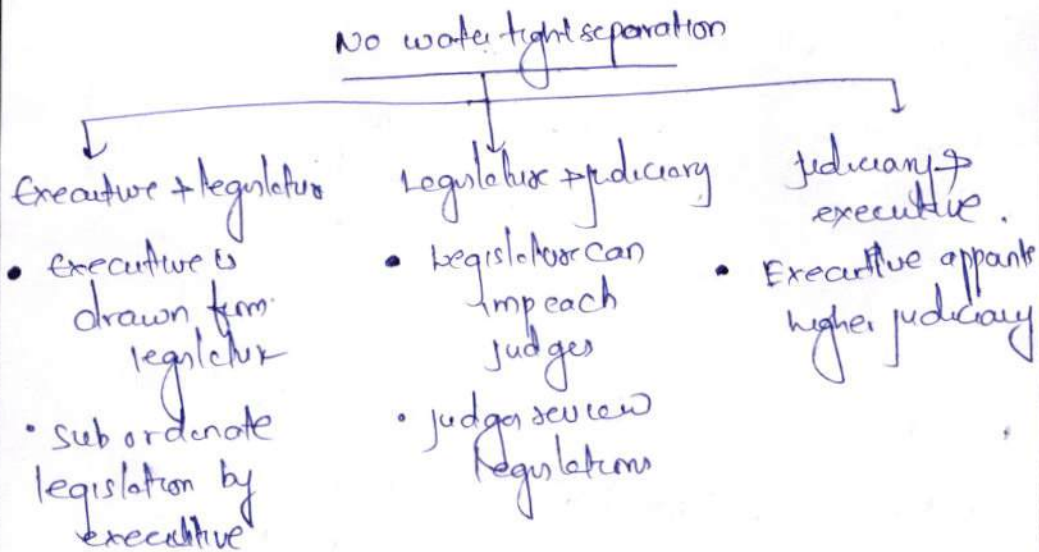 No water tight separation
Executive + legislature
• Executive is
drawn from
legislature
• sub ordinate
legislation by
executive
Legislature + judiciary
• Legislature can
impeach
judges
• judges review
legislations
judiciary +
executive.
• Executive appoints
higher judiciary